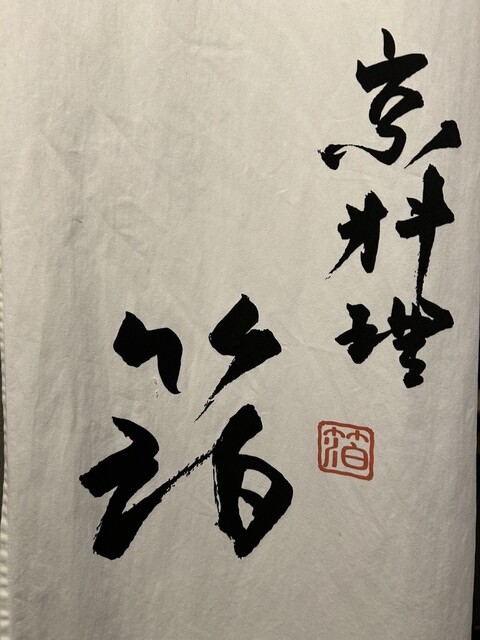 京料理
箔
箔